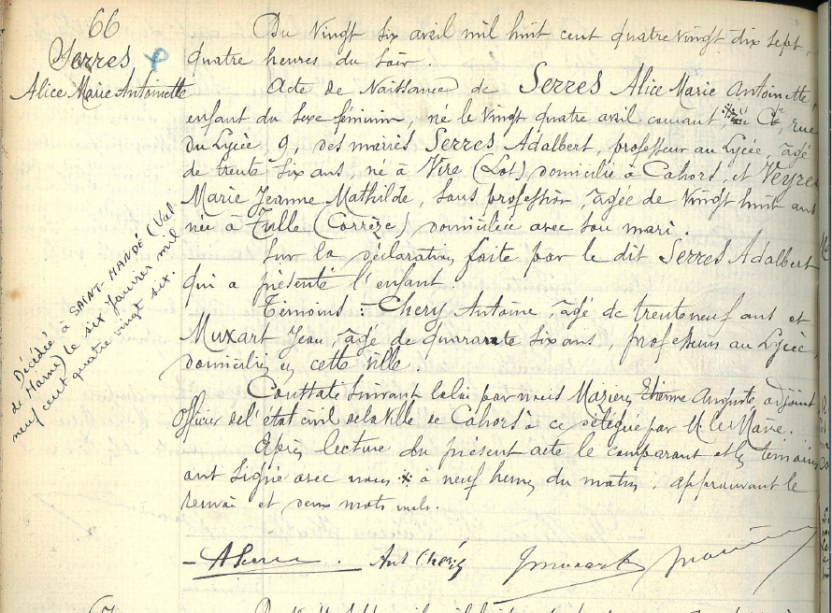 66
Serres
Alice Marie Antoinette
Du Vingt six avril mil huit cent quatre vingt dix sept,
quatre heures du soir.
Acte de Naissance de Serres Alice Marie Antoinette
enfant du sexe féminin, né le vingt quatre avril courant, rue
du Lycée 9, des mariés Serres Adalbert, professeur au Lycée, âgé
de trente six ans né à Vire (Lot) domicilié à Cahors, et Veyre
Marie Jeanne Mathilde, sans profession, âgée de vingt huit ans
née à Tulle (Corrèze) domiciliée avec son mari.
Sur la déclaration faite par le dit Serres Adalbert
qui a présenté l'enfant.
Témoins : Chery Antoine, âgé de trenteneuf ans et
Muxart Jean, âgé de quarante six ans, professeurs au Lycée,
domiciliés en cette ville.
Constaté suivant la loi par nous Etienne Auguste adjoint
Officier de l'état civil de la Ville de Cahors à ce délégué par M. le Maire.
Après lecture du présent acte le comparant et les témoins
ont signé avec nous * à neuf heures du matin. approuvant le
renvoi et deux mots nuls.
ASerres Ant Chéry
Décédée à SAINT-MANDÉ (Val
de Marne) le six Janvier mil
neuf cent quatre vingt six.